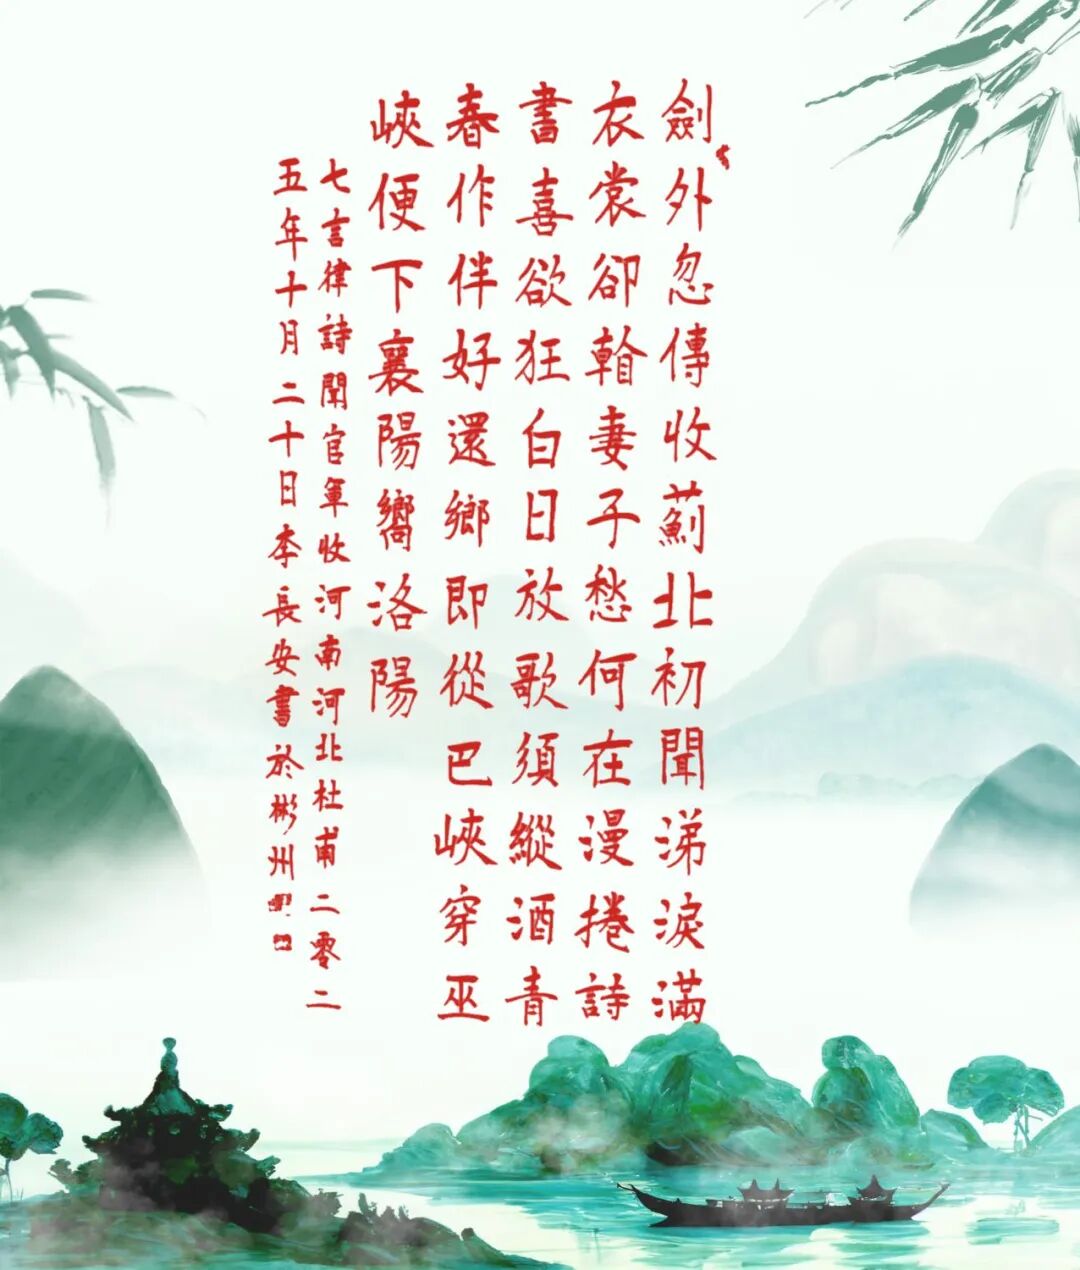 劍外忽傳收薊北初聞涕淚滿
衣裳卻看妻子愁何在漫捲詩
書喜欲狂白日放歌須縱酒青
春作伴好還鄉即從巴峽穿巫
峽便下襄陽嚮洛陽
七言律詩聞官軍收河南河北杜甫二零二
五年十月二十日李長安書於彬州